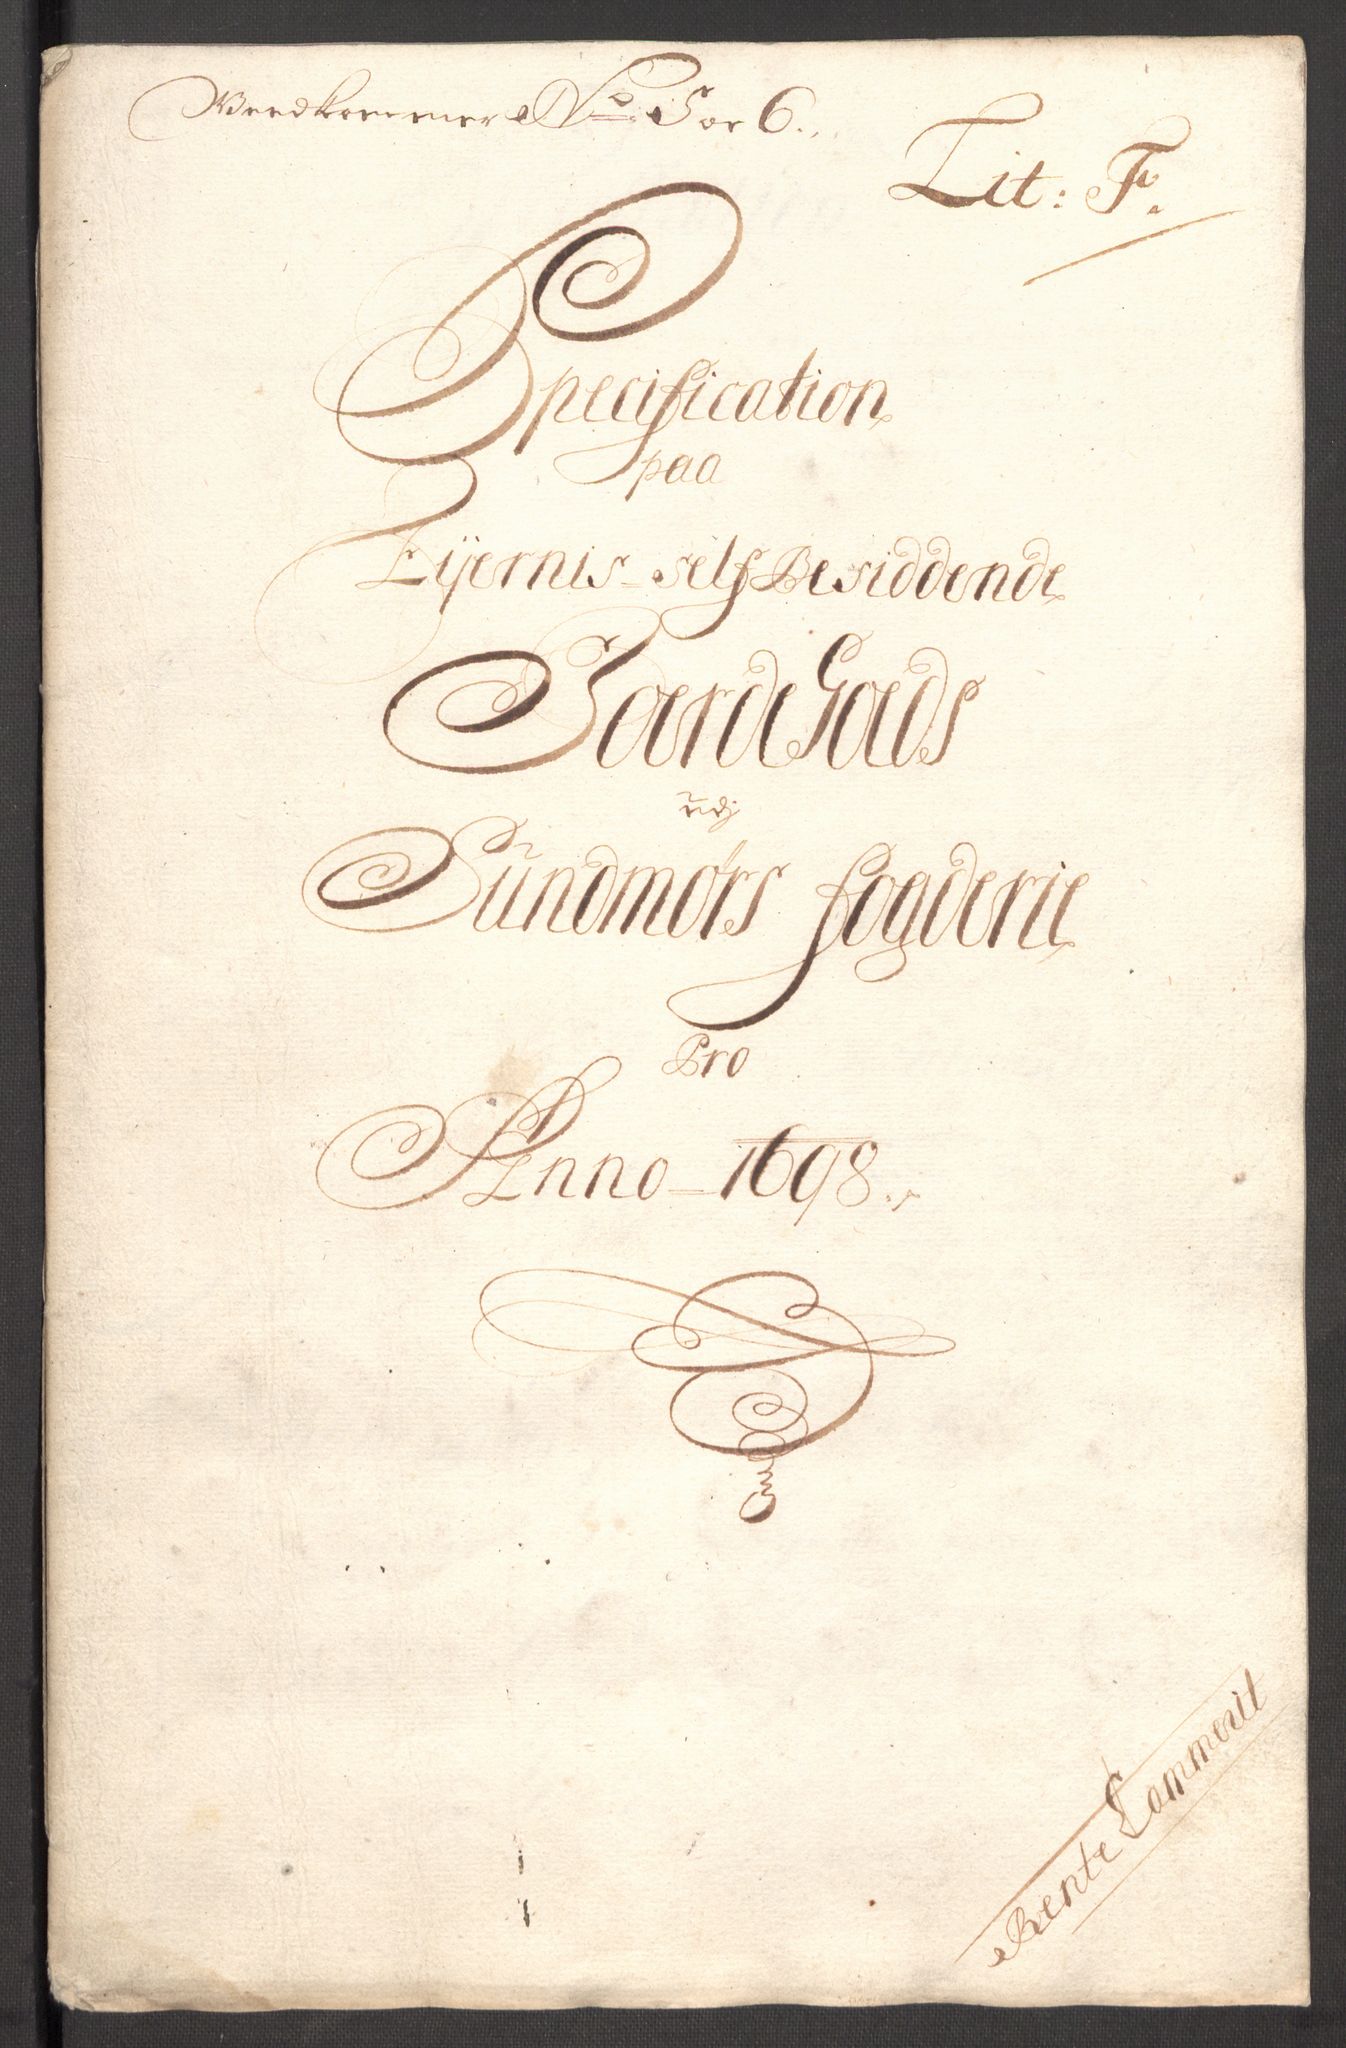 Vedkommer No 5 oc 6.
Lit: F.
Specification
paa
Eijernis self Besiddende
JordeGods
udj
Sündmørs fogderie
Pro
Anno 1698.
Rente Cammerit